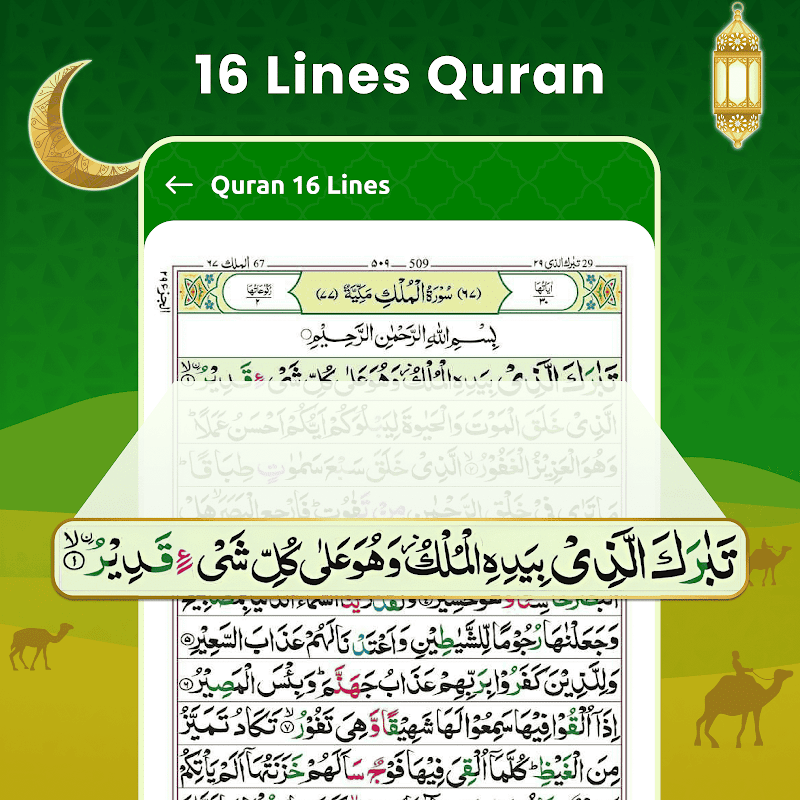 16 Lines Quran
Quran 16 Lines
29 تبٰرك الذى ٢٩ 509 ٥٠٩ 67 الملك ٦٧
اٰيَاتُهَا ٣٠ (٦٧) سُوْرَةُ الْمُلْكِ مَكِّيَّةٌ (٧٧) رُكُوْعَاتُهَا ٢
بِسْمِ اللّٰهِ الرَّحْمٰنِ الرَّحِيْمِ
تَبٰرَكَ الَّذِىْ بِيَدِهِ الْمُلْكُ وَهُوَ عَلٰى كُلِّ شَىْءٍ قَدِيْرُ ۙ﴿١﴾
الَّذِىْ خَلَقَ الْمَوْتَ وَالْحَيٰوةَ لِيَبْلُوَكُمْ اَيُّكُمْ اَحْسَنُ عَمَلًا ؕ
وَهُوَ الْعَزِيْزُ الْغَفُوْرُ ۙ﴿٢﴾ الَّذِىْ خَلَقَ سَبْعَ سَمٰوٰتٍ طِبَاقًا ؕ
مَا تَرٰى فِىْ خَلْقِ الرَّحْمٰنِ مِنْ تَفٰوُتٍ ؕ فَارْجِعِ الْبَصَرَ ۙ هَلْ
تَبٰرَكَ الَّذِىْ بِيَدِهِ الْمُلْكُ وَهُوَ عَلٰى كُلِّ شَىْءٍ قَدِيْرُ ۙ﴿١﴾
وَجَعَلْنٰهَا رُجُوْمًا لِّلشَّيٰطِيْنِ وَاَعْتَدْنَا لَهُمْ عَذَابَ السَّعِيْرِ ﴿٥﴾
وَلِلَّذِيْنَ كَفَرُوْا بِرَبِّهِمْ عَذَابُ جَهَنَّمَ ؕ وَبِئْسَ الْمَصِيْرُ ﴿٦﴾
اِذَاۤ اُلْقُوْا فِيْهَا سَمِعُوْا لَهَا شَهِيْقًا وَّهِىَ تَفُوْرُ ۙ﴿٧﴾ تَكَادُ تَمَيَّزُ
مِنَ الْغَيْظِ ؕ كُلَّمَاۤ اُلْقِىَ فِيْهَا فَوْجٌ سَاَلَهُمْ خَزَنَتُهَاۤ اَلَمْ يَاْتِكُمْ